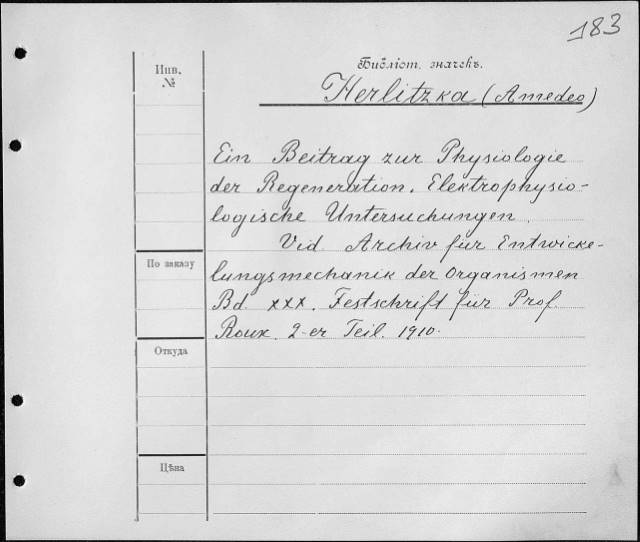 183
Библіот. значекъ.
Инв.
№
Herlitzka (Amedeo)
Ein Beitrag zur Physiologie
der Regeneration. Elektrophysio-
logische Untersuchungen.
Vid. Archiv für Entwicke-
По заказу
lungsmechanik der Organismen
Bd. XXX. Festschrift für Prof.
Roux. 2-er Teil. 1910.
Откуда
Цѣна